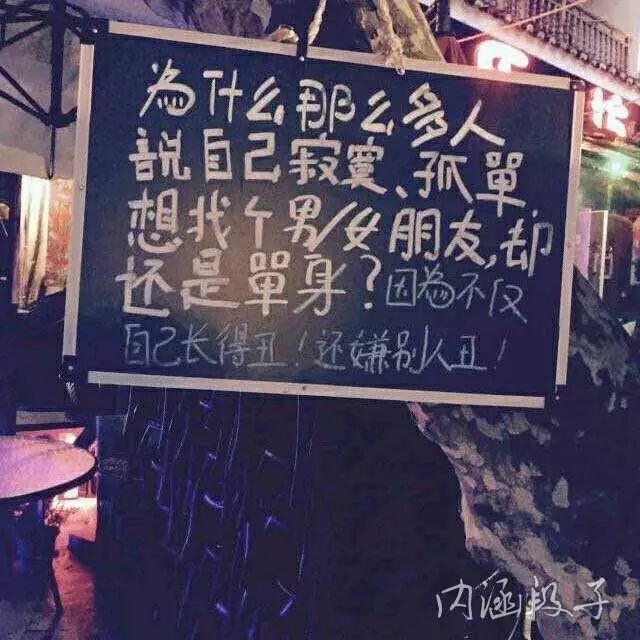 為什么那么多人
說自己寂寞、孤單,
想找个男/女朋友,却
还是單身?因為不仅
自己长得丑!还嫌别人丑!
内涵段子